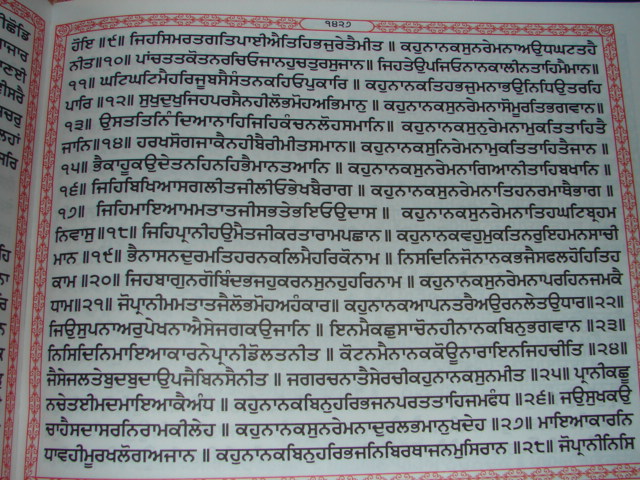 ੧੪੨੭
ਹੋਇ॥੯॥ਜਿਹਸਿਮਰਤਗਤਿਪਾਈਐਤਿਹਿਭਜੁਰੇਤੈਮੀਤ॥ਕਹੁਨਾਨਕਸੁਨਰੇਮਨਾਅਉਧਘਟਤਹੈ
ਨੀਤ॥੧੦॥ਪਾਂਚਤਤਕੋਤਨਰਚਿਓਜਾਨਹੁਚਤੁਰਸੁਜਾਨ॥ਜਿਹਤੇਉਪਜਿਓਨਾਨਕਾਲੀਨਤਾਹਿਮੈਮਾਨ॥
੧੧॥ਘਟਿਘਟਿਮੈਹਰਿਜੂਬਸੈਸੰਤਨਕਹਿਓਪੁਕਾਰਿ॥ਕਹੁਨਾਨਕਤਿਹਭਜੁਮਨਾਭਉਨਿਧਿਉਤਰਹਿ
ਪਾਰਿ॥੧੨॥ਸੁਖੁਦੁਖੁਜਿਹਪਰਸੈਨਹੀਲੋਭੁਮੋਹੁਅਭਿਮਾਨੁ॥ਕਹੁਨਾਨਕਸੁਨਰੇਮਨਾਸੋਮੂਰਤਿਭਗਵਾਨ॥
੧੩॥ਉਸਤਤਿਨਿੰਦਿਆਨਾਹਿਜਿਹਿਕੰਚਨਲੋਹਸਮਾਨਿ॥ਕਹੁਨਾਨਕਸੁਨਿਰੇਮਨਾਮੁਕਤਿਤਾਹਿਤੈ
ਜਾਨਿ॥੧੪॥ਹਰਖਸੋਗਜਾਕੈਨਹੀਬੈਰੀਮੀਤਸਮਾਨਿ॥ਕਹੁਨਾਨਕਸੁਨਿਰੇਮਨਾਮੁਕਤਿਤਾਹਿਤੈਜਾਨ॥
੧੫॥ਭੈਕਾਹੂਕਉਦੇਤਨਹਿਨਹਿਭੈਮਾਨਤਆਨਿ॥ਕਹੁਨਾਨਕਸੁਨਰੇਮਨਾਗਿਆਨੀਤਾਹਿਬਖਾਨਿ॥
੧੬॥ਜਿਹਿਬਿਖਿਆਸਗਲੀਤਜੀਲੀਓਭੇਖਬੈਰਾਗ॥ਕਹੁਨਾਨਕਸੁਨਰੇਮਨਾਤਿਹਨਰਮਾਥੈਭਾਗ॥
੧੭॥ਜਿਹਿਮਾਇਆਮਮਤਾਤਜੀਸਭਤੇਭਇਓਉਦਾਸ॥ਕਹੁਨਾਨਕਸੁਨਰੇਮਨਾਤਿਹਘਟਿਬ੍ਰਹਮ
ਨਿਵਾਸੁ॥੧੮॥ਜਿਹਿਪ੍ਰਾਨੀਹਉਮੈਤਜੀਕਰਤਾਰਾਮਪਛਾਨ॥ਕਹੁਨਾਨਕਵਹੁਮੁਕਤਿਨਰੁਇਹਮਨਸਾਚੀ
ਮਾਨ॥੧੯॥ਭੈਨਾਸਨਦੁਰਮਤਿਹਰਨਕਲਿਮੈਹਰਿਕੋਨਾਮ॥ਨਿਸਦਿਨਿਜੋਨਾਨਕਭਜੈਸਫਲਹੋਹਿਤਿਹ
ਕਾਮ॥੨੦॥ਜਿਹਬਾਗੁਨਗੋਬਿੰਦਭਜਹੁਕਰਨਸੁਨਹੁਹਰਿਨਾਮ॥ਕਹੁਨਾਨਕਸੁਨਰੇਮਨਾਪਰਹਿਨਜਮਕੈ
ਧਾਮ॥੨੧॥ਜੋਪ੍ਰਾਨੀਮਮਤਾਤਜੈਲੋਭਮੋਹਅਹੰਕਾਰ॥ਕਹੁਨਾਨਕਆਪਨਤਰੈਅਉਰਨਲੇਤਉਧਾਰ॥੨੨॥
ਜਿਉਸੁਪਨਾਅਰੁਪੇਖਨਾਐਸੇਜਗਕਉਜਾਨਿ॥ਇਨਮੈਕਛੁਸਾਚੋਨਹੀਨਾਨਕਬਿਨੁਭਗਵਾਨ॥੨੩॥
ਨਿਸਿਦਿਨਿਮਾਇਆਕਾਰਨੇਪ੍ਰਾਨੀਡੋਲਤਨੀਤ॥ਕੋਟਨਮੈਨਾਨਕਕੋਊਨਾਰਾਇਨਜਿਹਚੀਤਿ॥੨੪॥
ਜੈਸੇਜਲਤੇਬੁਦਬੁਦਾਉਪਜੈਬਿਨਸੈਨੀਤ॥ਜਗਰਚਨਾਤੈਸੇਰਚੀਕਹੁਨਾਨਕਸੁਨਮੀਤ॥੨੫॥ਪ੍ਰਾਨੀਕਛੂ
ਨਚੇਤਈਮਦਮਾਇਆਕੈਅੰਧ॥ਕਹੁਨਾਨਕਬਿਨੁਹਰਿਭਜਨਪਰਤਤਾਹਿਜਮਫੰਧ॥੨੬॥ਜਉਸੁਖਕਉ
ਚਾਹੈਸਦਾਸਰਨਿਰਾਮਕੀਲੇਹ॥ਕਹੁਨਾਨਕਸੁਨਰੇਮਨਾਦੁਰਲਭਮਾਨੁਖਦੇਹ॥੨੭॥ਮਾਇਆਕਾਰਨਿ
ਧਾਵਹੀਮੂਰਖਲੋਗਅਜਾਨ॥ਕਹੁਨਾਨਕਬਿਨੁਹਰਿਭਜਨਿਬਿਰਥਾਜਨਮੁਸਿਰਾਨ॥੨੮॥ਜੋਪ੍ਰਾਨੀਨਿਸਿ